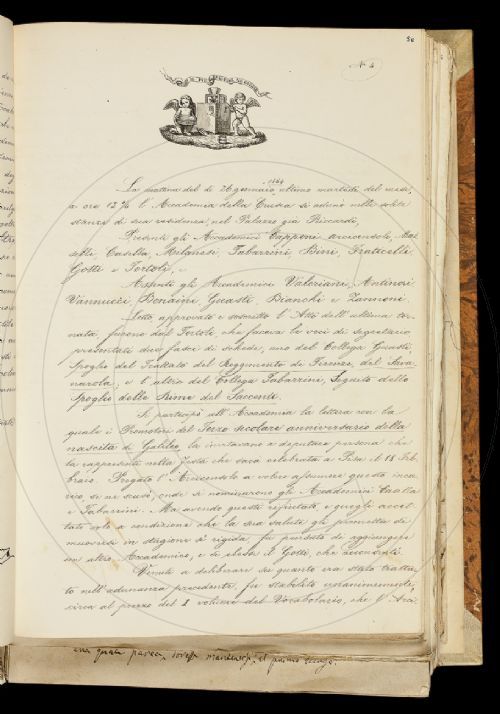 50
N.° 4
La mattina del dì 26 gennaio 1864, ultimo martedì del mese,
a ore 12 1/2 l'Accademia della Crusca si adunò nelle solite
stanze di sua residenza, nel Palazzo già Riccardi.
Presenti gli Accademici Capponi arciconsolo,
Casella, Milanesi, Tabarrini, Bini, Fraticelli,
Gotti e Tortoli,
Assenti gli Accademici Valeriani, Antinori
Vannucci, Bonaini, Guasti, Bianchi e Zannoni.
Letto, approvato e sottoscritto l'Atto dell'ultima tor-
nata, furono dal Tortoli, che faceva le veci di segretario
presentati due fasci di schede, uno del Collega Guasti,
Spoglio del Trattato del Reggimento di Firenze del Savo-
narola; e l'altro del Collega Tabarrini, Seguito dello
Spoglio delle Rime del Saccenti.
Si partecipò all'Accademia la lettera con la
quale i Promotori del Terzo secolare anniversario della
nascita di Galileo la invitavano a deputare persona che
la rappresenti nella festa che sarà celebrata a Pisa il 18 Feb-
braio. Pregato l'Arciconsolo a volere assumere questo inca-
rico, si scusò; onde si nominarono gli Accademici Casella
e Tabarrini. Ma avendo questi rifiutato, e quegli accet-
tato solo a condizione che la sua salute gli permetta di
muoversi in stagione sì rigida, fu pensato di aggiungere
un altro Accademico, e si elesse il Gotti, che acconsentì.
Venuti a deliberare su quanto era stato tratta-
to nell'adunanza precedente, fu stabilito unanimemente,
circa al prezzo del 1 volume del Vocabolario, che l'Acca